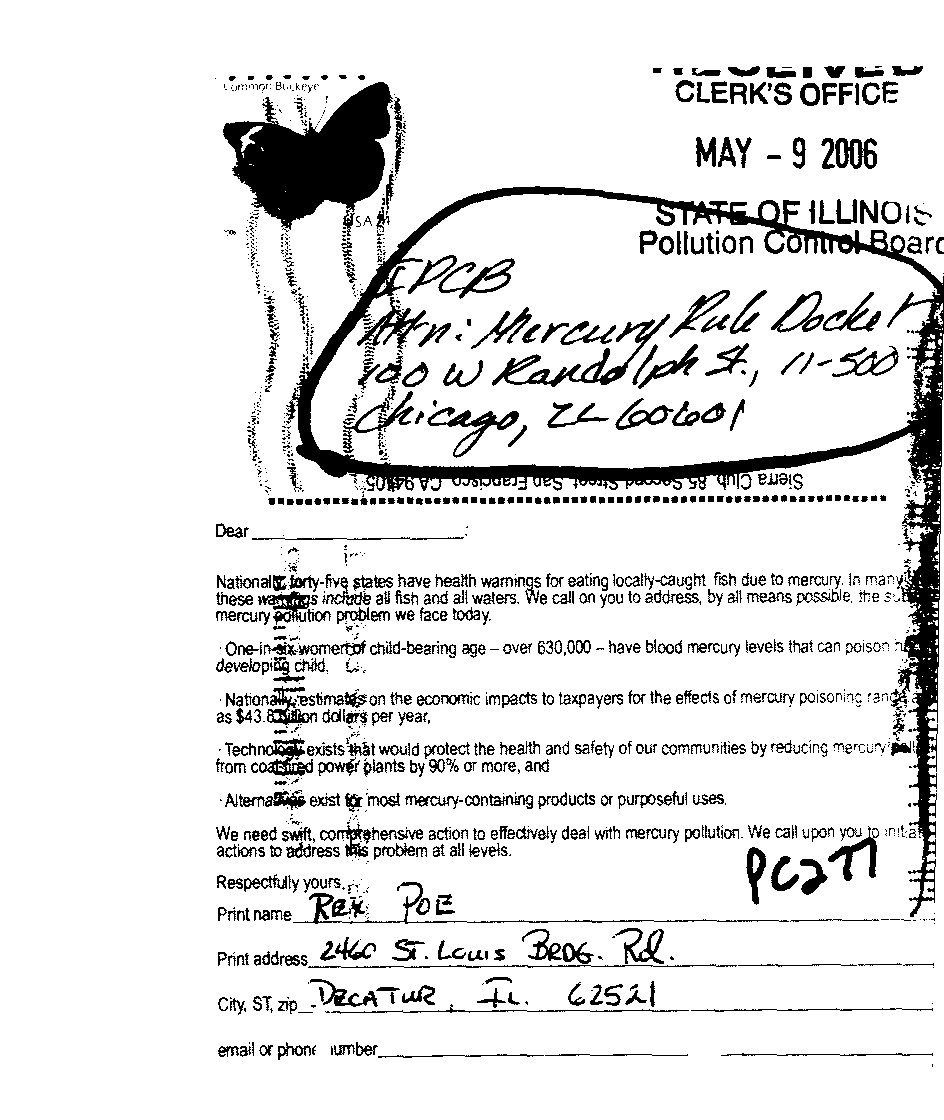 Common Buckeye
RECEIVED
CLERK'S OFFICE
MAY - 9 2006
USA
STATE OF ILLINOIS
Pollution Control Board
IPCB
Attn: Mercury Rule Docket
100 W Randolph St., 11-500
Chicago, IL 60601
Sierra Club, 85 Second Street, San Francisco, CA 94105
Dear
Nationally, forty-five states have health warnings for eating locally-caught fish due to mercury. In many
these warnings include all fish and all waters. We call on you to address, by all means possible, the
mercury pollution problem we face today.
· One-in-six women of child-bearing age – over 630,000 – have blood mercury levels that can poison
developing child,
· Nationally, estimates on the economic impacts to taxpayers for the effects of mercury poisoning range
as $43.8 billion dollars per year,
· Technology exists that would protect the health and safety of our communities by reducing mercury
from coal-fired power plants by 90% or more, and
· Alternatives exist for most mercury-containing products or purposeful uses.
We need swift, comprehensive action to effectively deal with mercury pollution. We call upon you to
actions to address this problem at all levels.
PC277
Respectfully yours,
Print name Rex Poe
Print address 2460 St. Louis Brdg. Rd.
City, ST, zip Decatur, IL. 62521
email or phone number